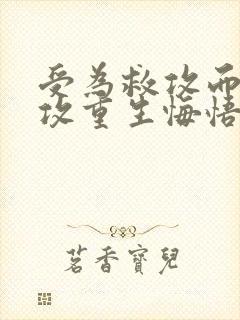 受為救攻而
攻重生悔悟
茗香寶兒